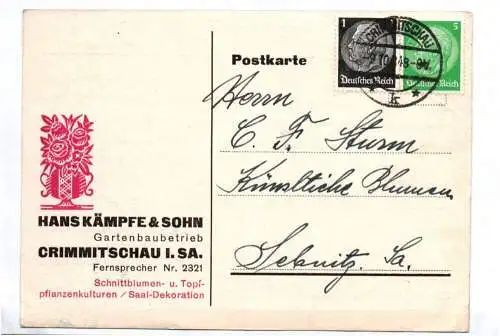 Postkarte
1
Deutsches Reich
5
Deutsches Reich
CRIMMITSCHAU
k
Herrn
C. F. Sturm
Künstliche Blumen
Sebnitz. Sa.
HANS KÄMPFE & SOHN
Gartenbaubetrieb
CRIMMITSCHAU I. SA.
Fernsprecher Nr. 2321
Schnittblumen- u. Topf-
pflanzenkulturen / Saal-Dekoration